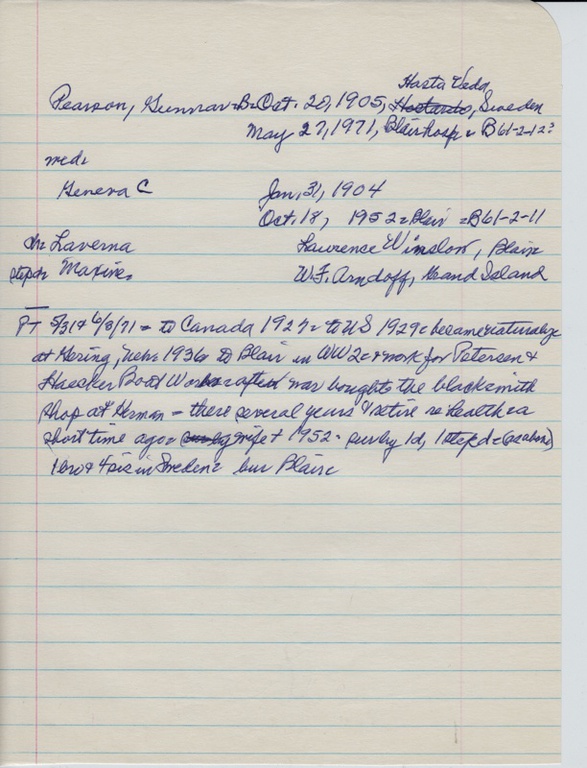 Hasta Veda
Pearson, Gunnar = B = Oct. 20, 1905, Sweden
May 27, 1971, Blair hosp & B 61-2-12?
med:
Geneva C Jan, 31, 1904
Oct. 18, 1952 = Blair = B 61-2-11
ch: Laverna Lawrence Winslow, Blair
stepch Maxine W.F. Arndoff, Grand Island
PT 5/31 & 6/3/71 = to Canada 1927 = to US 1929 = became naturalize
at Gering, Neb 1936 to Blair in WW2 = & work for Petersen &
Haecker Boat Works = after war bought the blacksmith
shop at Herman = there several years & retire re health = a
short time ago = wife + 1952 = sur by 1d, 1 stepd = (as above)
1 bro & 4 sis in Sweden = bur Blair